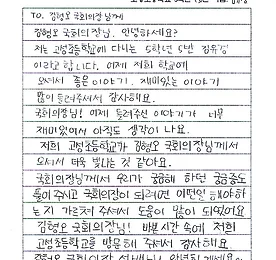 TO. 김형오 국회의장님께
김형오 국회의장님. 안녕하세요?
저는 고성초등학교에 다니는 5학년 5반 김유정
이라고 합니다. 어제 저희 학교에
오셔서 좋은 이야기, 재미있는 이야기
많이 들려주셔서 감사해요.
국회의장님! 어제 들려주신 이야기가 너무
재미있어서 아직도 생각이 나요.
저희 고성초등학교가 김형오 국회의장님께서
오셔서 더욱 빛나는 것 같아요.
국회의장님께서 우리가 궁금해 하던 궁금증도
풀어 주시고 국회의장이 되려면 어떤일을 해야하
는지 가르쳐주셔서 도움이 많이 되었어요
김형오 국회의장님! 바쁜시간 속에 저희
고성초등학교를 방문해 주셔서 감사해요.